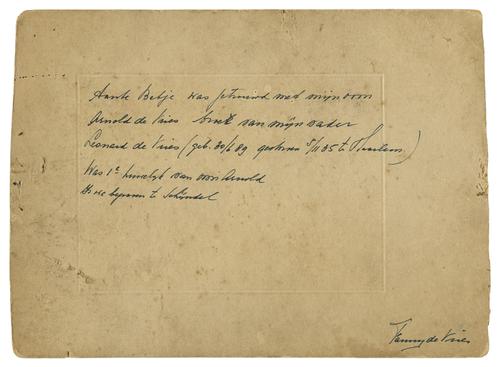 Tante Betje was getrouwd met mijn oom
Arnold de Vries broer van mijn vader
Leonard de Vries (geb. 30/6 89 gestorven 5/11 35 te Haarlem)
Was 1e huwelijk van oom Arnold
begraven te Schijndel
Fanny de Vries